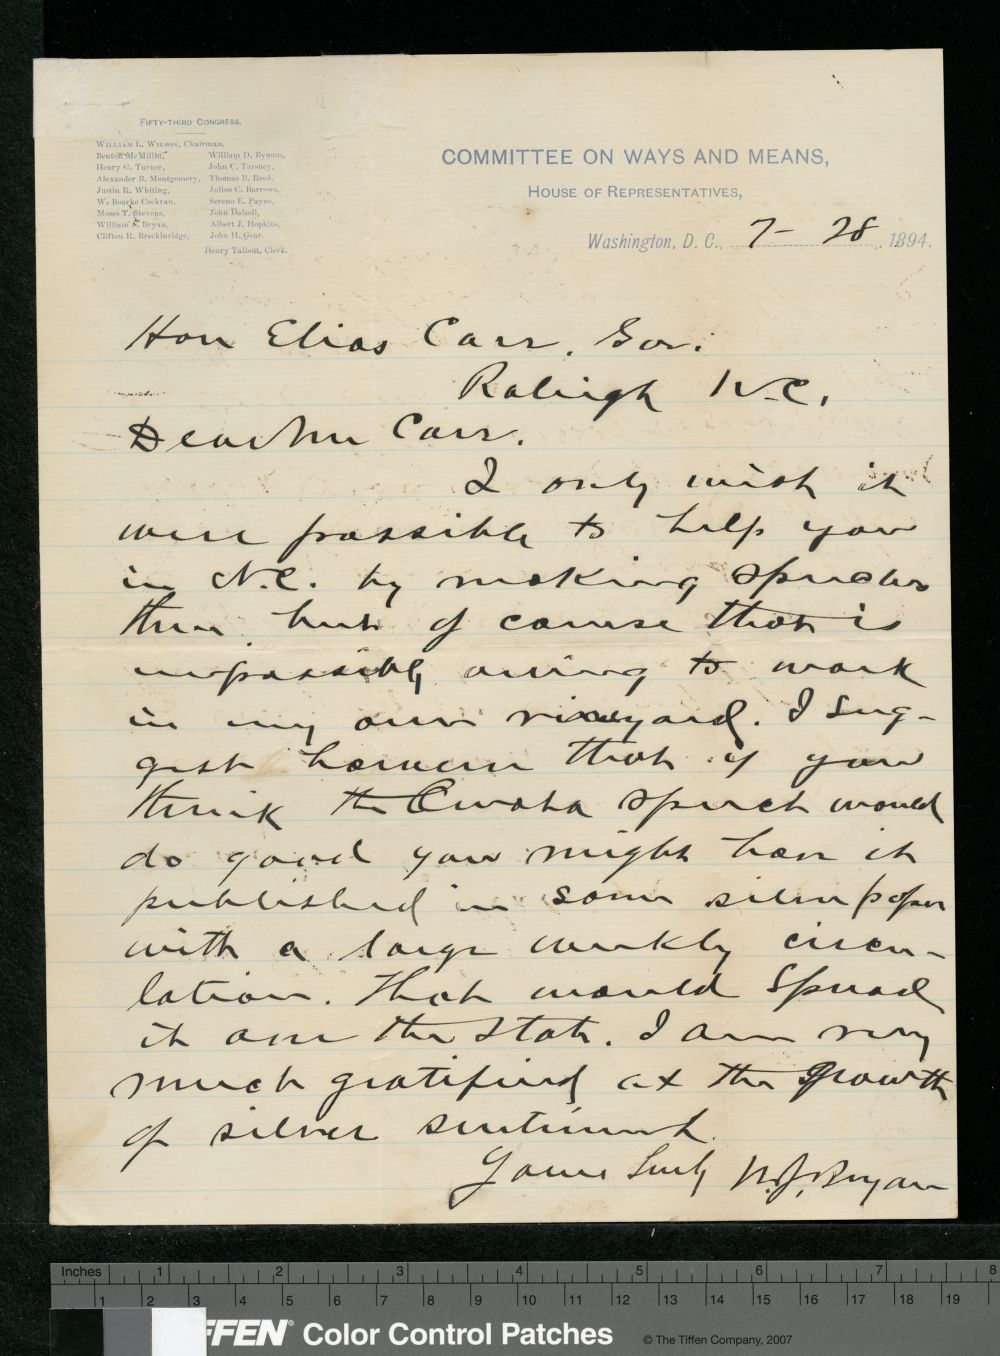 FIFTY-THIRD CONGRESS.
WILLIAM L. WILSON, Chairman,
Benton McMillin,
Henry G. Turner,
Alexander B. Montgomery,
Justin R. Whiting,
W. Bourke Cockran,
Moses T. Stevens,
William J. Bryan,
Clifton R. Breckinridge,
William D. Bynum,
John C. Tarsney,
Thomas B. Reed,
Julius C. Burrows,
Sereno E. Payne,
John Dalzell,
Albert J. Hopkins,
John H. Gear.
Henry Talbott, Clerk.
COMMITTEE ON WAYS AND MEANS,
HOUSE OF REPRESENTATIVES,
Washington, D. C., 7- 28, 1894.
Hon Elias Carr. Gov.
Raleigh N.C.
Dear Mr Carr.
I only wish it
were possible to help you
in N.C. by making speeches
there but of course that is
impossible owing to work
in my own vineyard. I sug-
gest however that if you
think the Omaha speech would
do good you might have it
published in some silver paper
with a large weekly circu-
lation. That would spread
it over the state. I am very
much gratified at the growth
of silver sentiment.
Yours truly W.J. Bryan
Inches 1 2 3 4 5 6 7 8
1 2 3 4 5 6 7 8 9 10 11 12 13 14 15 16 17 18 19
FFEN® Color Control Patches © The Tiffen Company, 2007